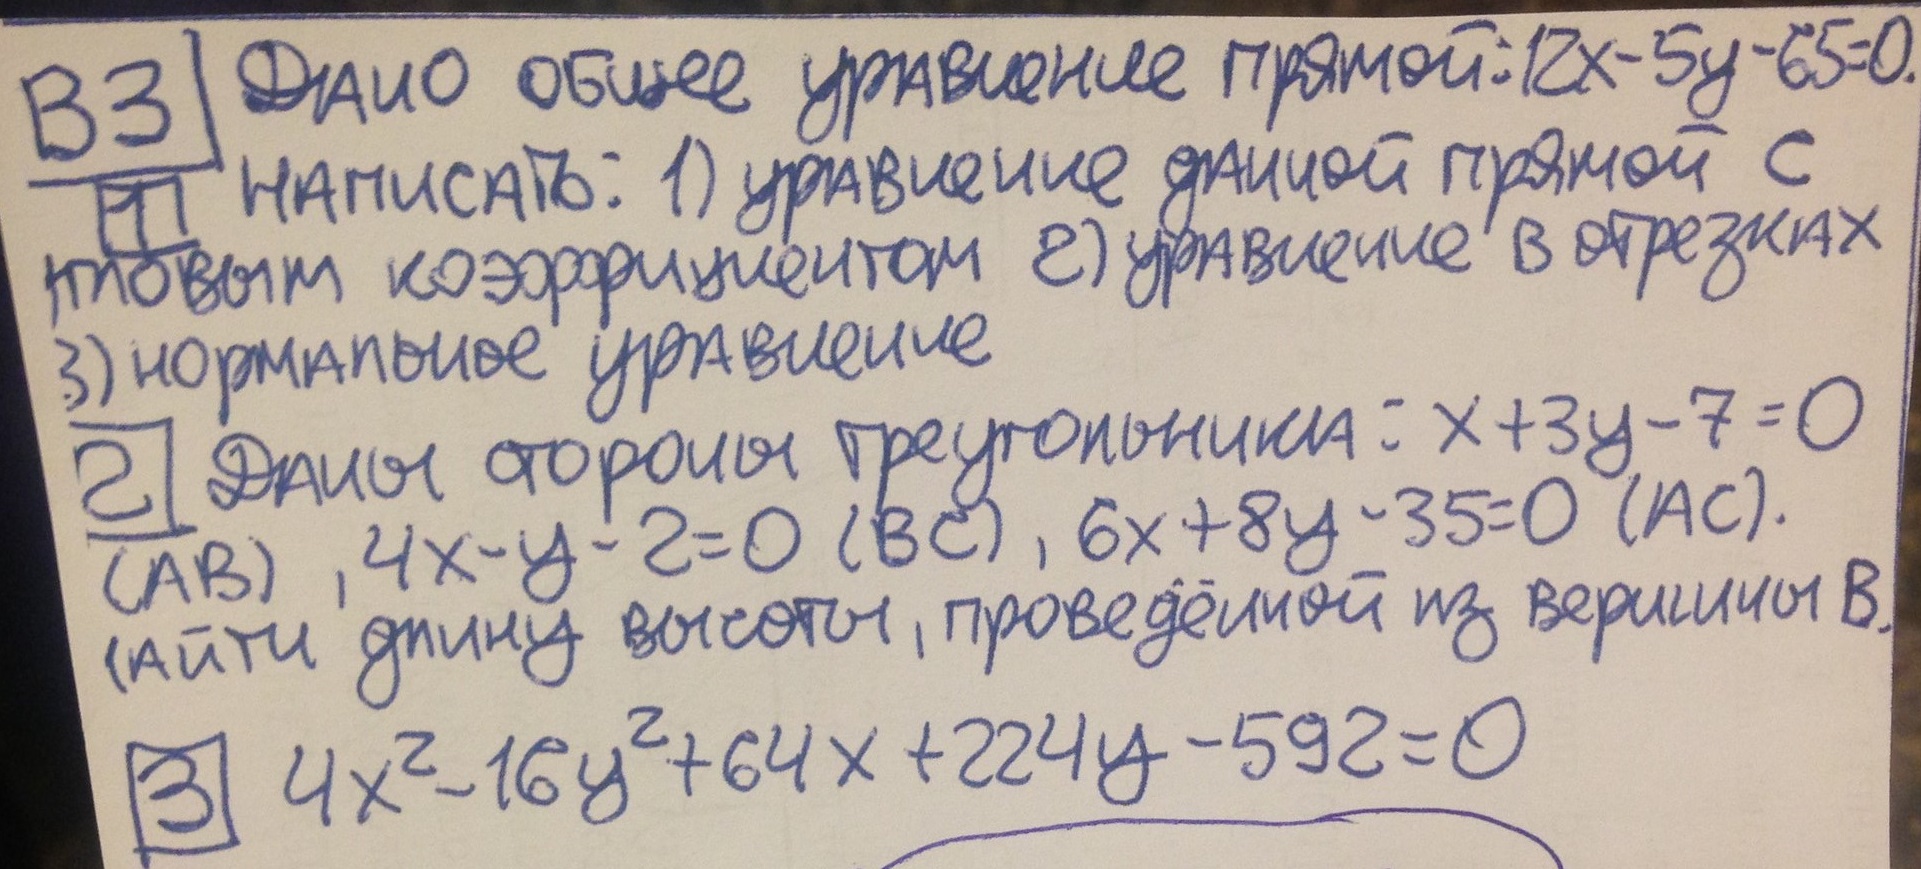 В3 Дано общее уравнение прямой: 12x-5y-65=0.
1 Написать: 1) уравнение данной прямой с
угловым коэффициентом 2) уравнение в отрезках
3) нормальное уравнение
2 Даны стороны треугольника: x+3y-7=0
(AB), 4x-y-2=0 (BC), 6x+8y-35=0 (AC).
Найти длину высоты, проведённой из вершины В.
3 4x²-16y²+64x+224y-592=0